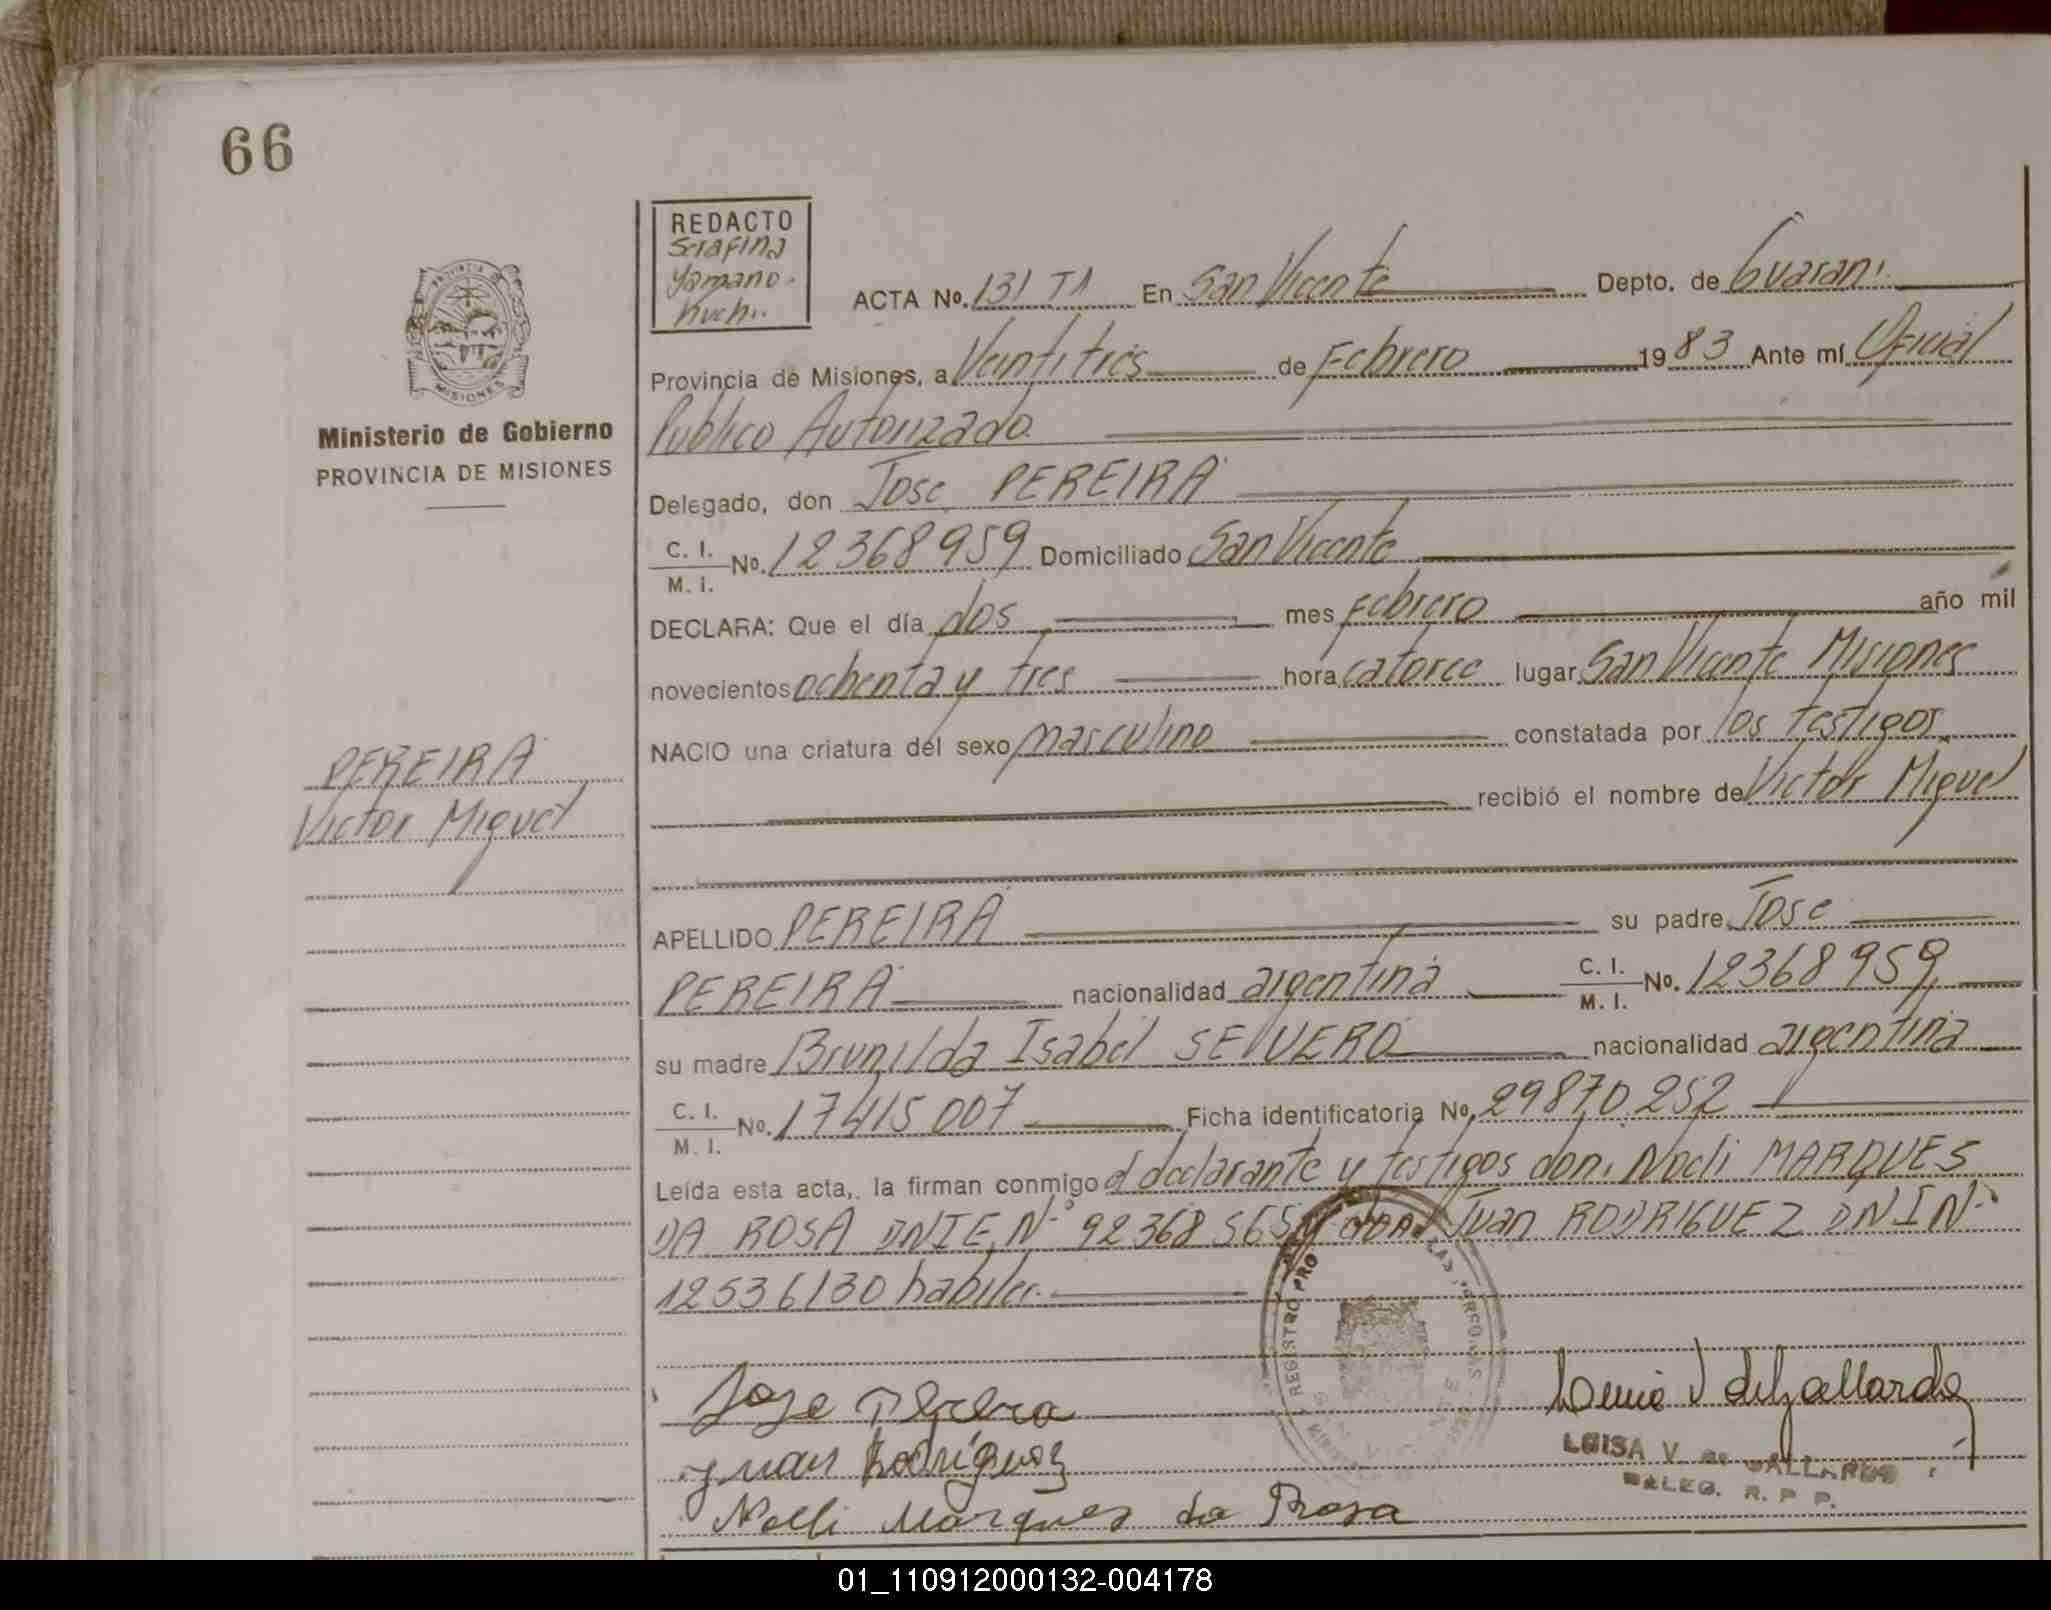 66
REDACTO
Serafina
Yamano.
Kuch..
ACTA No. 131 T1 En San Vicente Depto. de Guarani
Provincia de Misiones, a Veintitres de Febrero 19 83 Ante mí Oficial
Publico Autorizado
Delegado, don Jose PEREIRA
C. I.
M. I. No. 12368959 Domiciliado San Vicente
DECLARA: Que el día dos mes febrero año mil
novecientos ochenta y tres hora catorce lugar San Vicente Misiones
NACIO una criatura del sexo masculino constatada por los testigos
recibió el nombre de Victor Miguel
APELLIDO PEREIRA su padre Jose
PEREIRA nacionalidad argentina C. I.
M. I. No. 12368959
su madre Brunilda Isabel SEVERO nacionalidad argentina
C. I.
M. I. No. 17415007 Ficha identificatoria No. 29870.252
Leída esta acta, la firman conmigo el declarante y testigos don. Nocli MARQUES
DA ROSA DNIE N° 92368565 y don Juan RODRIGUEZ DNI N°
12536130 habiles.
PROVINCIA DE
MISIONES
Ministerio de Gobierno
PROVINCIA DE MISIONES
PEREIRA
Victor Miguel
REGISTRO PRO
Jose Pereira
Juan Rodriguez
Marques da Rosa
LUISA V. de GALLARDO
DELEG. R. P P.
01_110912000132-004178